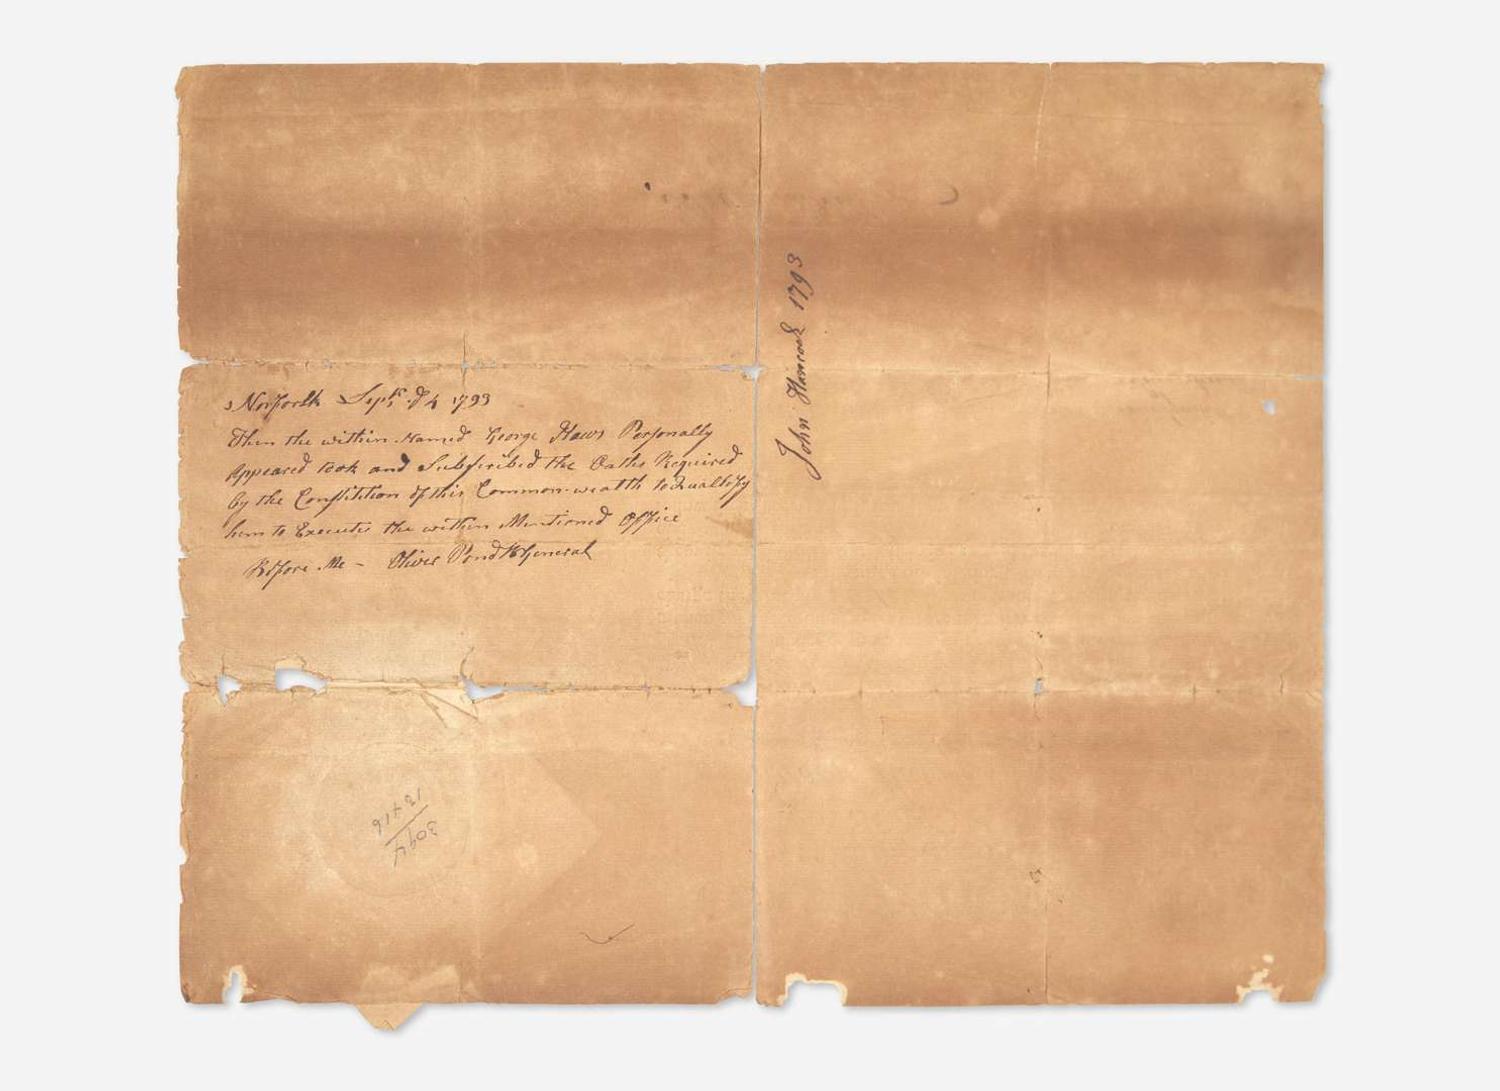 Norfolk Septr. d 4 1793
Then the within Named George Haws Personally
Appeared took and Subscribed the Oaths Required
by the Constitution of this Common-wealth to Qualefy
him to Execute the within Mentioned Office
Before Me - Oliver Pond General
John Hancock 1793
3094
13416